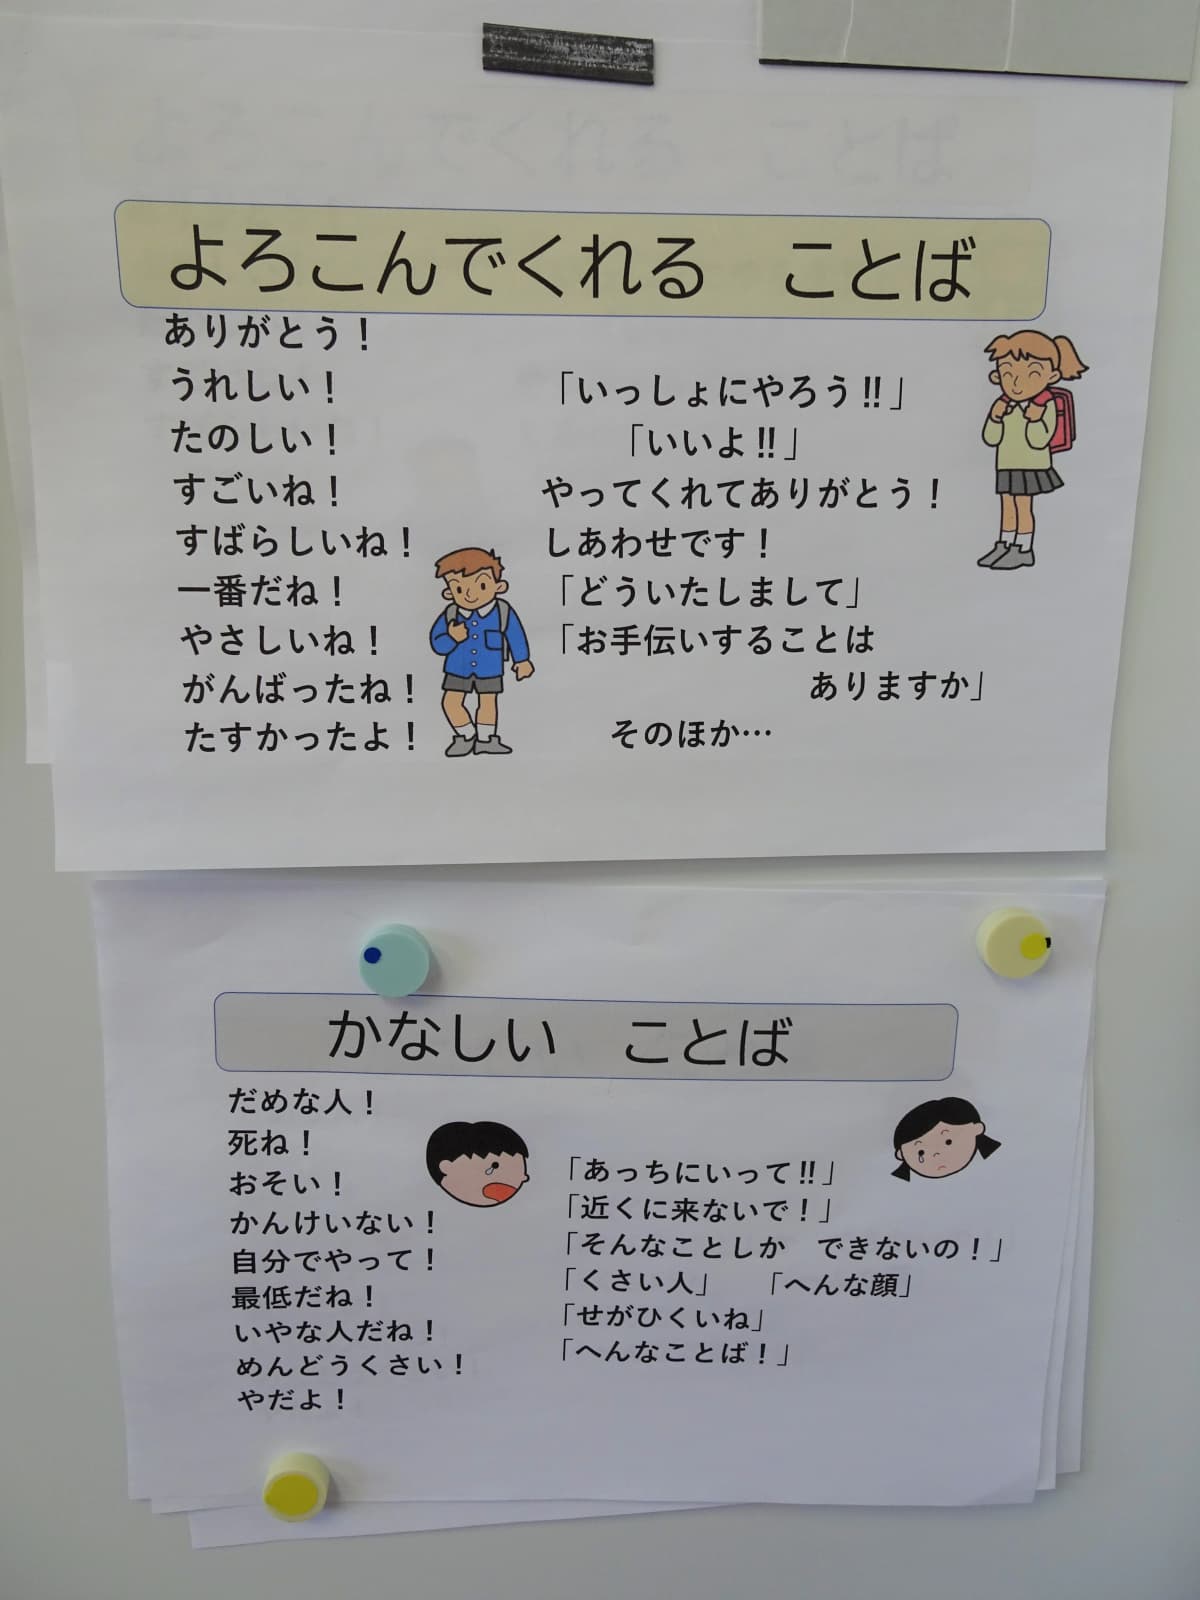 よろこんでくれる　ことば
ありがとう！
うれしい！
たのしい！
すごいね！
すばらしいね！
一番だね！
やさしいね！
がんばったね！
たすかったよ！
「いっしょにやろう‼」
「いいよ‼」
やってくれてありがとう！
しあわせです！
「どういたしまして」
「お手伝いすることは
ありますか」
そのほか…
かなしい　ことば
だめな人！
死ね！
おそい！
かんけいない！
自分でやって！
最低だね！
いやな人だね！
めんどうくさい！
やだよ！
「あっちにいって‼」
「近くに来ないで！」
「そんなことしか　できないの！」
「くさい人」　「へんな顔」
「せがひくいね」
「へんなことば！」